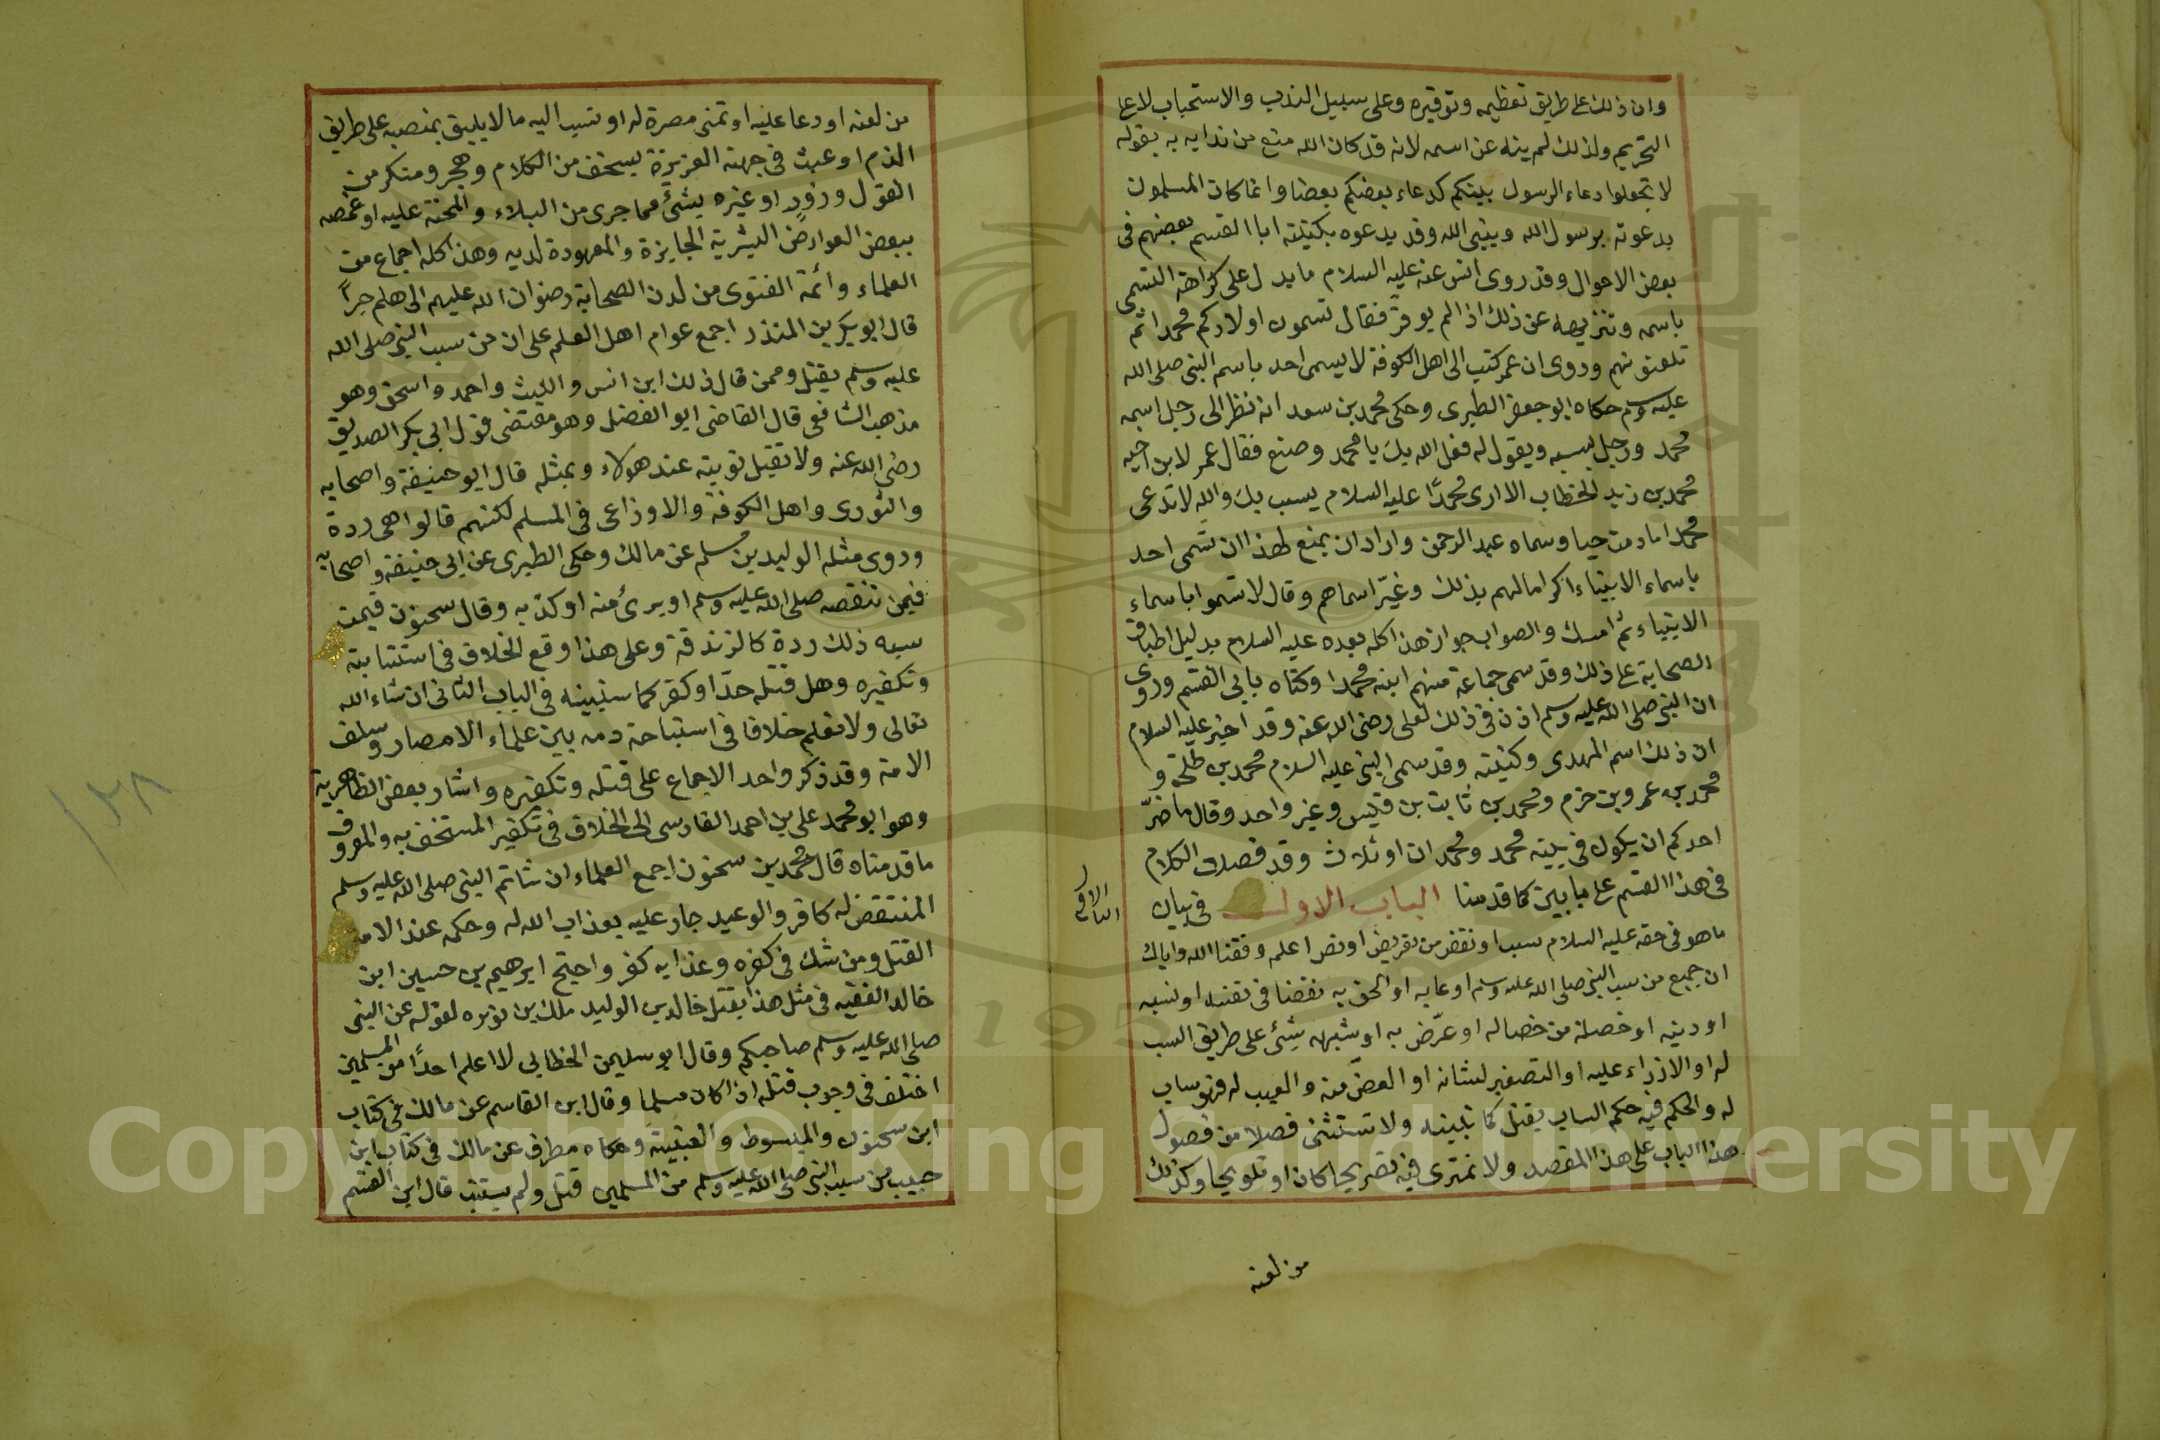 وان ذلك على طريق تعظيمه وتوقيره وعلى سبيل الندب والاستحباب لا على
التحريم ولذلك لم ينه عن اسمه لانه قد كان الله منع من ندايه به بقوله
لا تجعلوا دعاء الرسول بينكم كدعاء بعضكم بعضا وانما كان المسلمون
يدعونه برسول الله وبنبى الله وقد يدعوه بكنيته ابا القسم بعضهم فى
بعض الاحوال وقد روى انس عنه عليه السلام ما يدل على كراهة التسمى
باسمه وتنزيهه عن ذلك اذا لم يوقر فقال تسمون اولادكم محمدا ثم
تلعنونهم وروى ان عمر كتب الى اهل الكوفة لا يسمى احد باسم النبى صلى الله
عليه وسلم حكاه ابو جعفر الطبرى وحكى محمد بن سعد انه نظر الى رجل اسمه
محمد ورجل يسبه ويقول له فعل الله بك يا محمد وصنع فقال عمر لابن اخيه
محمد بن زيد الخطاب الا ارى محمدًا عليه السلام يسب بك والله لا تدعى
محمدا ما دمت حيا وسماه عبد الرحمن واراد ان يمنع لهذا ان تسمى احد
باسماء الانبياء اكراما لهم بذلك وغيّر اسماهم وقال لا تسموا باسماء
الانبياء ثم امسك والصواب جواز هذا كله بعده عليه السلام بدليل اطباق
الصحابة على ذلك وقد سمى جماعة منهم ابنه محمدا وكناه بابي القسم وروى
ان النبى صلى الله عليه وسلم اذن فى ذلك لعلى رضى الله عنه وقد اخبر عليه السلام
ان ذلك اسم المهدى وكنيته وقد سمى النبى عليه السلام محمد بن طلحة و
محمد بن عمرو بن حزم ومحمد بن ثابت بن قيس وغير واحد وقال ما ضرّ
احدكم ان يكون فى بيته محمد ومحمدان او ثلاث وقد فصلت الكلام
فى هذا القسم على بابين كما قدمنا الباب الاول فى بيان
الباب الاول
ما هو فى حقه عليه السلام سب او نقص من تعريض او نص اعلم وفقنا الله واياك
ان جميع من سب النبى صلى الله عليه وسلم او عابه او الحق به نقصا فى نفسه او نسبه
او دينه او خصلة من خصاله او عرّض به او شبهه بشىء على طريق السب
له او الازراء عليه او التصغير لشانه او الغضّ منه والعيب له فهو ساب
له والحكم فيه حكم الساب يقتل كما نبينه ولا تستثنى فصلا من فصول
هذا الباب على هذا المقصد ولا نمترى فيه تصريحا كان او تلويحا وكذلك
من لعنه
من لعنه او دعا عليه او تمنى مضرة له او نسب اليه ما لا يليق بمنصبه على طريق
الذم او عبث فى جهته العزيزة بسخف من الكلام وهجر ومنكر من
القول وزورٍ او غيره بشىء مما جرى من البلاء والمحنة عليه او غمصه
ببعض العوارض البشرية الجايزة والمعهودة لديه وهذا كله اجماع من
العلماء وائمة الفتوى من لدن الصحابة رضوان الله عليهم الى هلم جرًا
قال ابو بكر بن المنذر اجمع عوام اهل العلم على ان من سب النبى صلى الله
عليه وسلم يقتل وممن قال ذلك ابن انس والليث واحمد واسحق وهو
مذهب الشافعى قال القاضى ابو الفضل وهو مقتضى قول ابى بكر الصديق
رضى الله عنه ولا تقبل توبته عند هولاء وبمثله قال ابو حنيفة واصحابه
والثورى واهل الكوفة والاوزاعى فى المسلم لكنهم قالوا هى ردة
وروى مثله الوليد بن مسلم عن مالك وحكى الطبرى عن ابى حنيفة واصحابه
فيمن تنقصه صلى الله عليه وسلم او برئ منه او كذبه وقال سحنون فيمن
سبه ذلك ردة كالزندقة وعلى هذا وقع الخلاف فى استتابته
وتكفيره وهل قتله حدّ او كفر كما سنبينه فى الباب الثانى ان شاء الله
تعالى ولا نعلم خلافا فى استباحة دمه بين علماء الامصار وسلف
الامة وقد ذكر واحد الاجماع على قتله وتكفيره واشار بعض الظاهرية
وهو ابو محمد على بن احمد الفارسى الى الخلاف فى تكفير المستخف به والمعروف
ما قدمناه قال محمد بن سحنون اجمع العلماء ان شاتم النبى صلى الله عليه وسلم
المنتقص له كافر والوعيد جار عليه بعذاب الله له وحكمه عند الامة
القتل ومن شك فى كفره وعذابه كفر واحتج ابرهيم بن حسين ابن
خالد الفقيه فى مثل هذا بقتل خالد بن الوليد ملك بن نويره لقوله عن النبى
صلى الله عليه وسلم صاحبكم وقال ابو سليمن الخطابى لا اعلم احدًا من المسلمين
اختلف فى وجوب قتله اذا كان مسلما وقال ابن القاسم عن مالك فى كتاب
ابن سحنون والمبسوط والعتبية وحكاه مطرف عن مالك فى كتاب ابن
حبيب من سب النبى صلى الله عليه وسلم من المسلمين قتل ولم يستتب قال ابن القسم
١٣٨
Copyright © King Saud University
1957